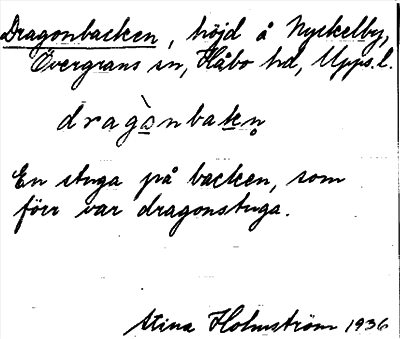 Dragonbacken, höjd å Nyckelby,
Övergrans sn, Håbo hd, Upps. l.
dragònbakn̥
En stuga på backen, som
förr var dragonstuga.
Stina Holmström 1936